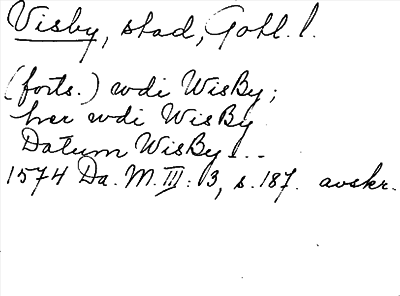 Visby, stad, Gotl. l.
(forts.) wdi WisBy;
her wdi WisBy
Datum WisBy...
1574 Da. M. III: 3, s. 187. avskr.